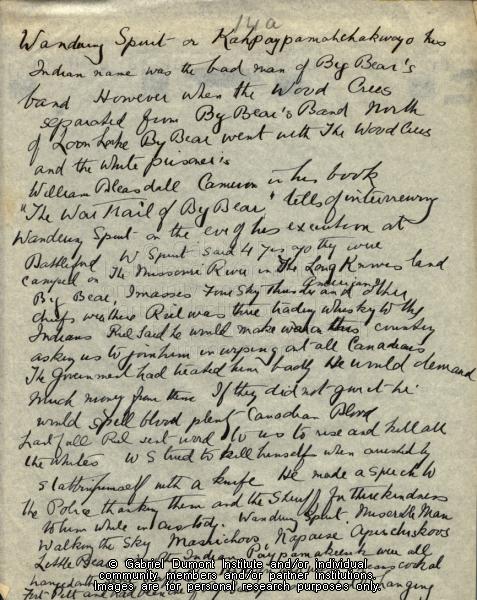 14a
Wandering Spirit or Kahpaypamahchakwayo his
Indian name was the bad man of Big Bear's
band However when the Wood Crees
separated from Big Bear's Band North
of Loon Lake Big Bear went with The Wood Crees
and the white prisoner's
William Bleasdall Cameron in his book
"The War Trail of Big Bear" tells of interviewing
Wandering Spirit on the eve of his execution at
Battleford W Spirit said 4 yrs ago they were
camped on The Missouri River in The Long Knives land
American
Big Bear, Imasses Four Sky Thunder and other
chiefs were there Riel was there trading whisky to the
Indians Riel said he would make war on this country
asking us to join him in wiping out all Canadians
The Government had treated him badly He would demand
much money from them If they did not give it he
would spill blood plenty Canadian Blood
Last fall Riel sent word to us to rise and kill all
the whites W S tried to kill himself when arrested by
with a knife He made a speech to
the Police thanking them and the Sheriff for there kindness
to him while in custody. Wandering Spirit Miserable Man
Walking the Sky Manichoos, Napaise Apischiskoos
Little Bear Indian were all
hanged at
Fort Pitt and hanging
© Gabriel Dumont Institute and/or individual
community members and/or partner institutions.
Images are for personal research purposes only.